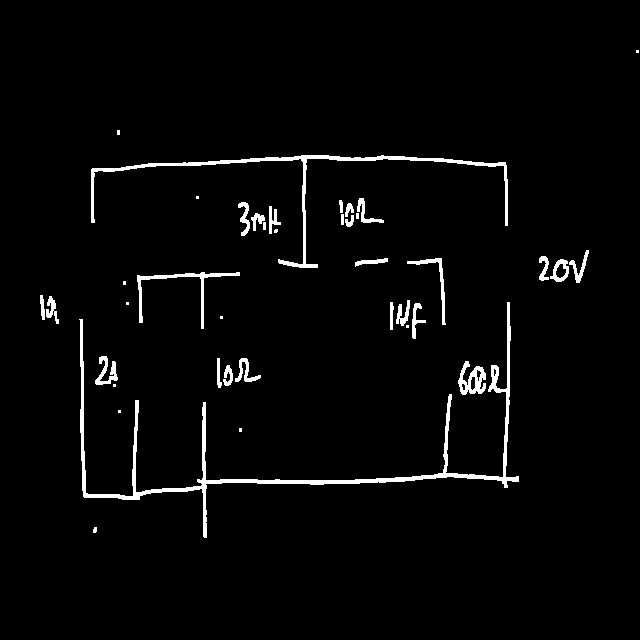 3mH 10Ω
20V
1Ω 1μF
2Ω 10Ω 600Ω